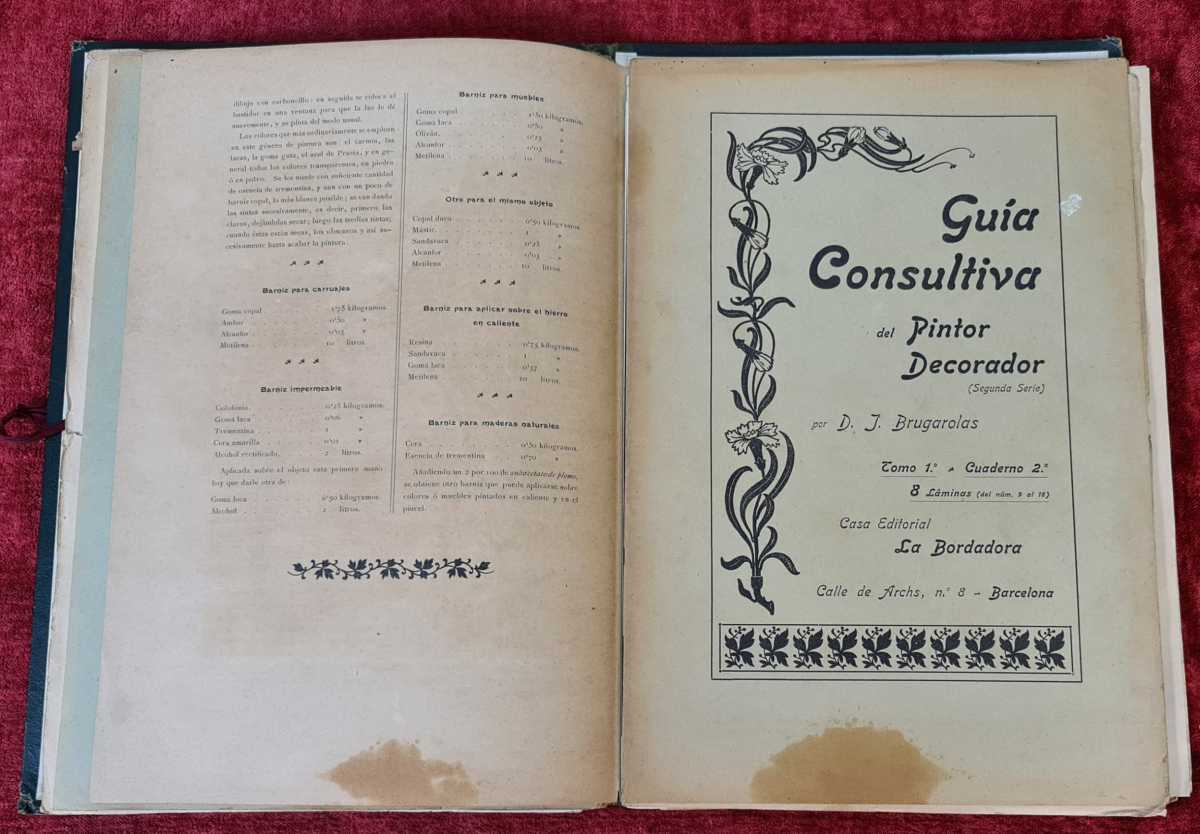 dibujo con carboncillo: en seguida se coloca el
bastidor en una ventana para que la luz le dé
suavemente, y se pinta del modo usual.
Los colores que más ordinariamente se emplean
en este género de pintura son: el carmín, las
lacas, la goma guta, el azul de Prusia, y en ge-
neral todos los colores transparentes, en piedra
ó en polvo. Se les muele con suficiente cantidad
de esencia de trementina, y aun con un poco de
barniz copal, lo más blanco posible; se van dando
las tintas sucesivamente, es decir, primero las
claras, dejándolas secar; luego las medias tintas;
cuando éstas están secas, los obscuros y así su-
cesivamente hasta acabar la pintura.
Barniz para carruajes
Goma copal 1'75 kilogramos.
Ambar 0'50 »
Alcanfor 0'03 »
Metilena 10 litros.
Barniz impermeable
Colofonia 0'25 kilogramos.
Goma laca 0'06 »
Trementina 1 »
Cera amarilla 0'01 »
Alcohol rectificado 2 litros.
Aplicada sobre el objeto esta primera mano
hay que darle otra de:
Goma laca 0'50 kilogramos.
Alcohol 2 litros.
Barniz para muebles
Goma copal 1'50 kilogramos.
Goma laca 0'50 »
Olivan 0'25 »
Alcanfor 0'03 »
Metilena 10 litros.
Otro para el mismo objeto
Copal duro 0'50 kilogramos.
Mástic 1 »
Sandaraca 0'25 »
Alcanfor 0'03 »
Metilena 10 litros.
Barniz para aplicar sobre el hierro
en caliente
Resina 0'75 kilogramos.
Sandaraca 1 »
Goma laca 0'37 »
Metilena 10 litros.
Barniz para maderas naturales
Cera 0'50 kilogramos.
Esencia de trementina 0'70 »
Añadiendo un 2 por 100 de subacetato de plomo,
se obtiene otro barniz que puede aplicarse sobre
colores ó muebles pintados en caliente y en el
pincel.
Guía
Consultiva
del Pintor
Decorador
(Segunda Serie)
por D. J. Brugarolas
Tomo 1.º Cuaderno 2.º
8 Láminas (del núm. 9 al 16)
Casa Editorial
La Bordadora
Calle de Archs, n.º 8 - Barcelona